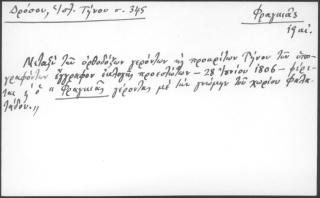 Δρόσου, Ἱστ. Τήνου σ. 345
Φραγκιᾶς
19 αἰ.
Μεταξύ τῶν ὀρθοδόξων γερόντων κ; προκρίτων Τήνου τῶν ὑπο-
γραφόντων ἔγγραφον ἐκλογῆς προεστώτων - 28 Ἰουνίου 1806 - φέρε-
ται κ; ὁ "Φραγκιᾶς γέροντας μέ τήν γνώμην τοῦ χωρίου Φαλα-
τάδου."